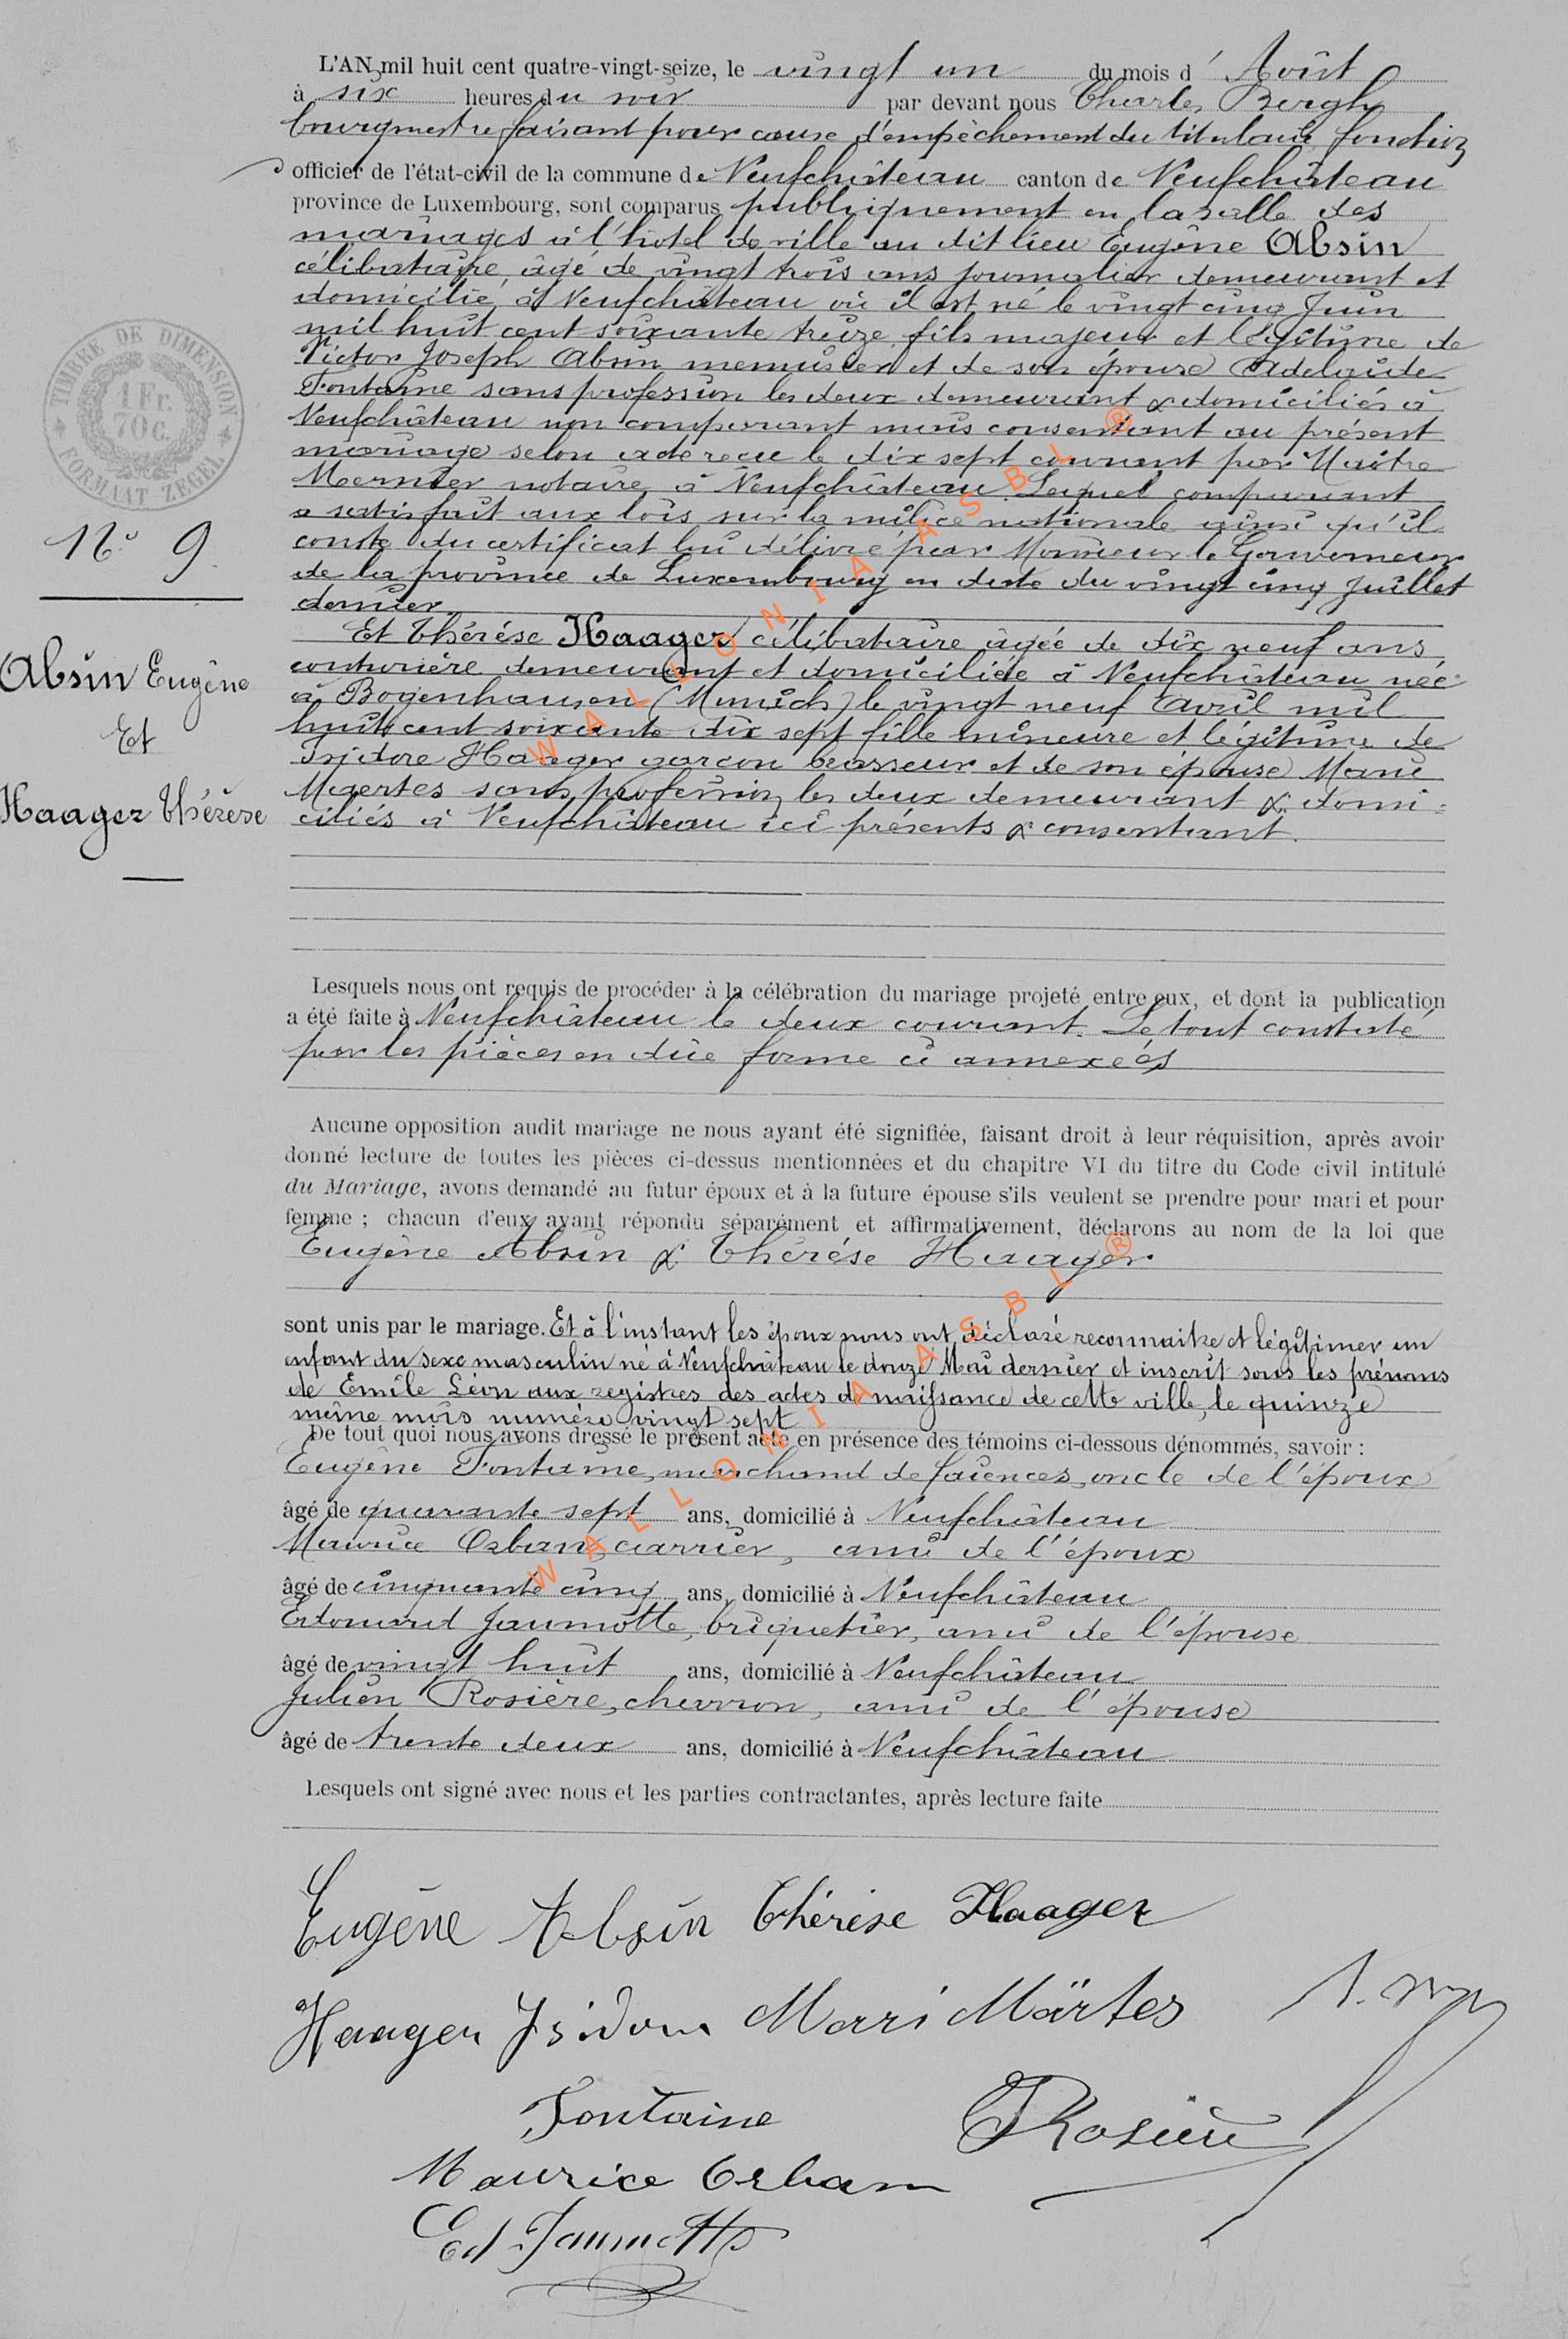 L'AN mil huit cent quatre-vingt-seize, le vingt un du mois d' Août
à six heures du soir par devant nous Charles Bergh
bourgmestre faisant pour cause d'empêchement du titulaire fonction
officier de l'état-civil de la commune de Neufchâteau canton de Neufchâteau
province de Luxembourg, sont comparus publiquement en la salle des
mariages à l'hotel de ville au dit lieu Eugène Absin
célibataire, âgé de vingt trois ans journalier demeurant et
domicilié à Neufchâteau où il est né le vingt cinq Juin
mil huit cent soixante treize fils majeur et légitime de
Victor Joseph Absin menuisier et de son épouse Adelaïde
Fontaine sans profession les deux demeurant & domiciliés à
Neufchâteau non comparant mais consentant au présent
mariage selon acte reçu le dix sept courant par Maitre
Mernier notaire à Neufchâteau. Lequel comparant
a satisfait aux lois sur la milice nationale ainsi qu'il
conste du certificat lui délivré par Monsieur le Gouverneur
de la province de Luxembourg en date du vingt cinq Juillet
dernier.
Et Thérèse Haager célibataire âgée de dix neuf ans
couturière demeurant et domiciliée à Neufchâteau née
à Bogenhausen (Munich) le vingt neuf Avril mil
huit cent soixante dix sept fille mineure et légitime de
Isidore Haager garçon brasseur et de son épouse Marie
Maertes sans profession les deux demeurant & domi-
ciliés à Neufchâteau ici présents & consentant.
TIMBRE DE DIMENSION
1 Fr.
70 C.
FORMAAT ZEGEL
N° 9.
Absin Eugène
Et
Haager Thérèse
Lesquels nous ont requis de procéder à la célébration du mariage projeté entre eux, et dont la publication
a été faite à Neufchâteau le deux courant. Le tout constaté
par les pièces en dûe forme ci annexées
Aucune opposition audit mariage ne nous ayant été signifiée, faisant droit à leur réquisition, après avoir
donné lecture de toutes les pièces ci-dessus mentionnées et du chapitre VI du titre du Code civil intitulé
du Mariage, avons demandé au futur époux et à la future épouse s'ils veulent se prendre pour mari et pour
femme ; chacun d'eux ayant répondu séparément et affirmativement, déclarons au nom de la loi que
Eugène Absin & Thérèse Haager
sont unis par le mariage. Et à l'instant les époux nous ont déclaré reconnaitre et légitimer un
enfant du sexe masculin né à Neufchâteau le douze Mai dernier et inscrit sous les prénoms
de Emile Léon aux registres des actes de naissance de cette ville, le quinze
même mois numéro vingt sept
De tout quoi nous avons dressé le présent acte en présence des témoins ci-dessous dénommés, savoir :
Eugène Fontaine, marchand de faïences, oncle de l'époux
âgé de quarante sept ans, domicilié à Neufchâteau
Maurice Orban, carrier, ami de l'époux
âgé de cinquante cinq ans, domicilié à Neufchâteau
Edouard Jaumotte, briquetier, ami de l'épouse
âgé de vingt huit ans, domicilié à Neufchâteau
Julien Rosière, charron, ami de l'épouse
âgé de trente deux ans, domicilié à Neufchâteau
Lesquels ont signé avec nous et les parties contractantes, après lecture faite
Eugène Absin Thérèse Haager
Haager Isidor Mari Märtes
Fontaine Rosière
Maurice Orban
Ed. Jaumotte
WALLONIA ASBL ®
WALLONIA ASBL ®